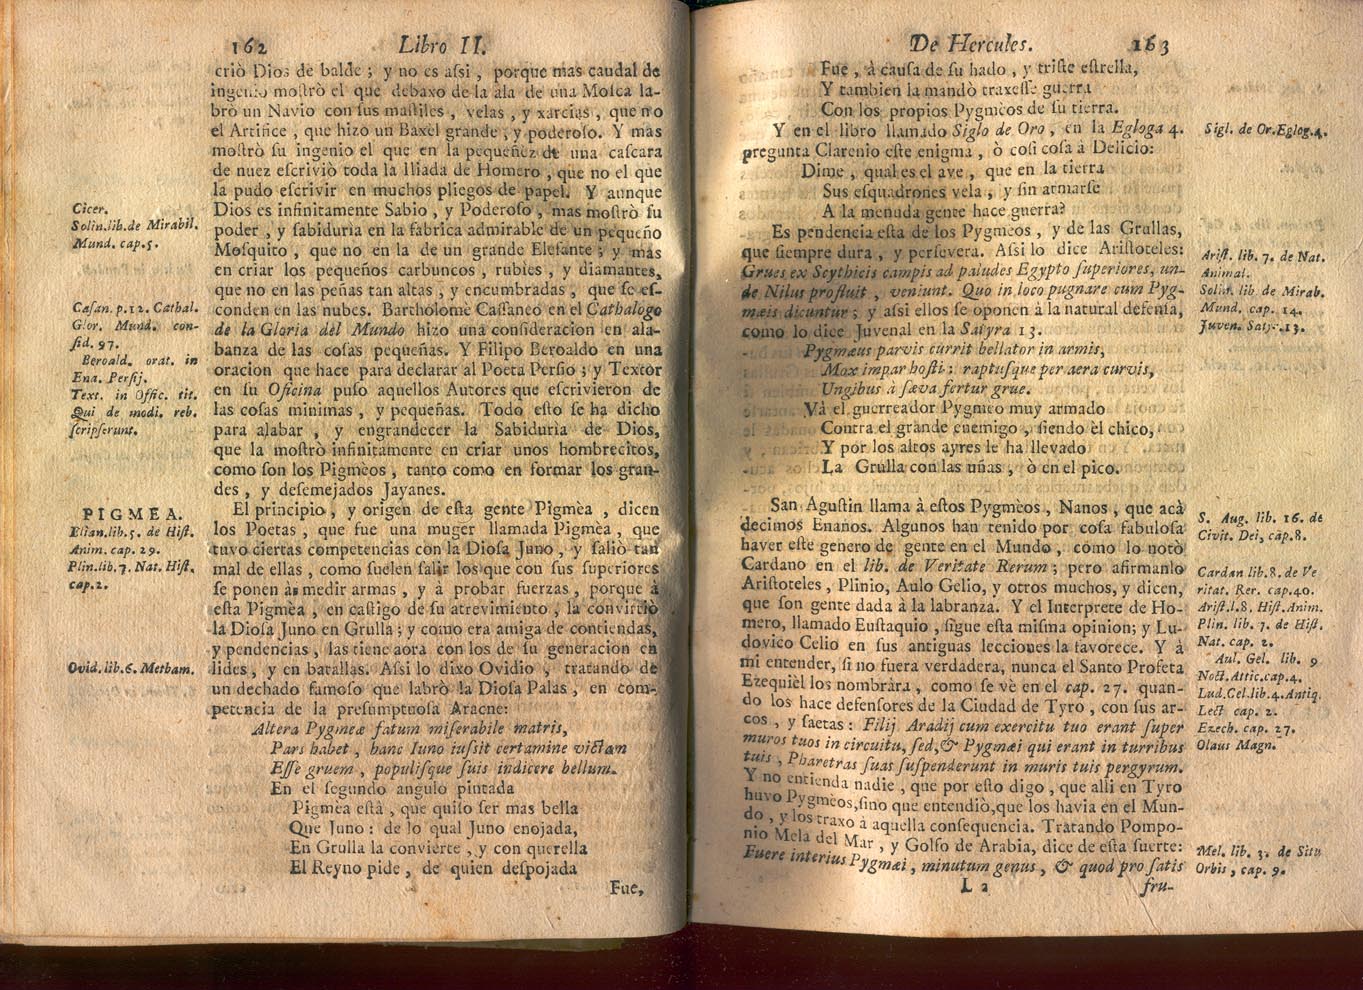 162 Libro II.
criò Dios de balde ; y no es aſsi , porque mas caudal de
ingenio moſtrò el que debaxo de la ala de una Moſca la-
brò un Navio con ſus maſtiles , velas , y xarcias , que no
el Artifice , que hizo un Baxel grande , y poderoſo. Y mas
moſtrò ſu ingenio el que en la pequeñez de una caſcara
de nuez eſcriviò toda la Iliada de Homero , que no el que
la pudo eſcrivir en muchos pliegos de papel. Y aunque
Dios es infinitamente Sabio , y Poderoſo , mas moſtrò ſu
poder , y ſabiduria en la fabrica admirable de un pequeño
Moſquito , que no en la de un grande Elefante ; y mas
en criar los pequeños carbuncos , rubies , y diamantes,
que no en las peñas tan altas , y encumbradas , que ſe eſ-
conden en las nubes. Bartholomè Caſſaneo en el Cathalogo
de la Gloria del Mundo hizo una conſideracion en ala-
banza de las coſas pequeñas. Y Filipo Beroaldo en una
oracion que hace para declarar al Poeta Perſio ; y Textor
en ſu Oficina puſo aquellos Autores que eſcrivieron de
las coſas minimas , y pequeñas. Todo eſto ſe ha dicho
para alabar , y engrandecer la Sabiduria de Dios,
que la moſtrò infinitamente en criar unos hombrecitos,
como ſon los Pigmèos , tanto como en formar los gran-
des , y deſemejados Jayanes.
El principio , y origen de eſta gente Pigmèa , dicen
los Poetas , que fue una muger llamada Pigmèa , que
tuvo ciertas competencias con la Dioſa Juno , y ſaliò tan
mal de ellas , como ſuelen ſalir los que con ſus ſuperiores
ſe ponen à medir armas , y à probar fuerzas , porque à
eſta Pigmèa , en caſtigo de ſu atrevimiento , la convirtiò
la Dioſa Juno en Grulla ; y como era amiga de contiendas,
y pendencias , las tiene aora con los de ſu generacion en
lides , y en batallas. Aſsi lo dixo Ovidio , tratando de
un dechado famoſo que labrò la Dioſa Palas , en com-
petencia de la preſumptuoſa Aracne:
Altera Pygmeæ fatum miſerabile matris,
Pars habet , hanc Iuno iuſsit certamine victam
Eſſe gruem , populiſque ſuis indicere bellum.
En el ſegundo angulo pintada
Pigmèa eſtà , que quiſo ſer mas bella
Que Juno : de lo qual Juno enojada,
En Grulla la convierte , y con querella
El Reyno pide , de quien deſpojada
Fue,
Cicer.
Solin.lib.de Mirabil.
Mund. cap.5.
Caſan. p.12. Cathal.
Glor. Mund. con-
ſid. 97.
Beroald. orat. in
Ena. Perſij.
Text. in Offic. tit.
Qui de modi. reb.
ſcripſerunt.
PIGMEA.
Elian.lib.5. de Hiſt.
Anim. cap. 29.
Plin.lib.7. Nat. Hiſt.
cap.2.
Ovid. lib.6. Metham.
De Hercules. 163
Fue , à cauſa de ſu hado , y triſte eſtrella,
Y tambien la mandò traxeſſe guerra
Con los propios Pygmeos de ſu tierra.
Y en el libro llamado Siglo de Oro , en la Egloga 4.
pregunta Clarenio eſte enigma , ò coſi coſa à Delicio:
Dime , qual es el ave , que en la tierra
Sus eſquadrones vela , y ſin armarſe
A la menuda gente hace guerra?
Es pendencia eſta de los Pygmèos , y de las Grullas,
que ſiempre dura , y perſevera. Aſsi lo dice Ariſtoteles:
Grues ex Scythicis campis ad paludes Egypto ſuperiores, un-
de Nilus profluit , veniunt. Quo in loco pugnare cum Pyg-
mæis dicuntur ; y aſsi ellos ſe oponen à la natural defenſa,
como lo dice Juvenal en la Satyra 13.
Pygmæus parvis currit bellator in armis,
Mox impar hoſti : raptuſque per aera curvis,
Ungibus à ſæva fertur grue.
Và el guerreador Pygmeo muy armado
Contra el grande enemigo , ſiendo èl chico,
Y por los altos ayres le ha llevado
La Grulla con las uñas , ò en el pico.
San Aguſtin llama à eſtos Pygmèos , Nanos , que acà
decimos Enanos. Algunos han tenido por coſa fabuloſa
haver eſte genero de gente en el Mundo , como lo notò
Cardano en el lib. de Veritate Rerum ; pero afirmanlo
Ariſtoteles , Plinio, Aulo Gelio, y otros muchos, y dicen,
que ſon gente dada à la labranza. Y el Interprete de Ho-
mero, llamado Euſtaquio , ſigue eſta miſma opinion; y Lu-
dovico Celio en ſus antiguas lecciones la favorece. Y à
mi entender, ſi no fuera verdadera, nunca el Santo Profeta
Ezequièl los nombràra , como ſe vè en el cap. 27. quan-
do los hace defenſores de la Ciudad de Tyro , con ſus ar-
cos , y ſaetas : Filij Aradij cum exercitu tuo erant ſuper
muros tuos in circuitu, ſed, & Pygmæi qui erant in turribus
tuis , Pharetras ſuas ſuſpenderunt in muris tuis pergyrum.
Y no entienda nadie , que por eſto digo , que alli en Tyro
huvo Pygmèos, ſino que entendiò, que los havia en el Mun-
do , y los traxo à aquella conſequencia. Tratando Pompo-
nio Mela del Mar , y Golfo de Arabia, dice de eſta ſuerte:
Fuere interius Pygmæi , minutum genus , & quod pro ſatis
L 2 fru-
Sigl. de Or.Eglog.4.
Ariſt. lib. 7. de Nat.
Animal.
Solin. lib. de Mirab.
Mund. cap. 14.
Juven. Satyr.13.
S. Aug. lib. 16. de
Civit. Dei, cap.8.
Cardan lib.8. de Ve
ritat. Rer. cap.40.
Ariſt.l.8. Hiſt.Anim.
Plin. lib. 7. de Hiſt.
Nat. cap. 2.
Aul. Gel. lib. 9
Noct. Attic.cap.4.
Lud.Cel.lib.4.Antiq.
Lect cap. 2.
Ezech. cap. 27.
Olaus Magn.
Mel. lib. 3. de Situ
Orbis , cap. 9.